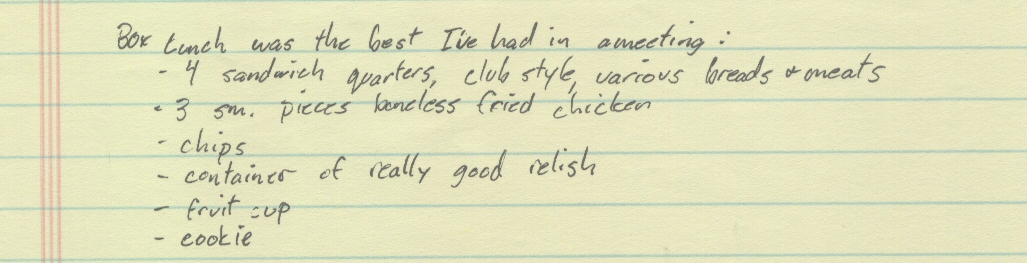 Box Lunch was the best I've had in a meeting:
- 4 sandwich quarters, club style, various breads & meats
- 3 sm. pieces boneless fried chicken
- chips
- container of really good relish
- fruit cup
- cookie